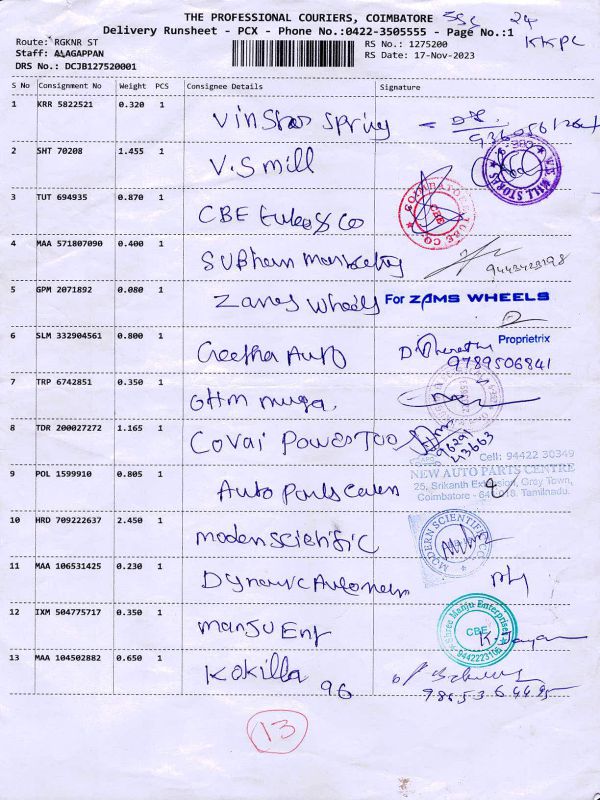 THE PROFESSIONAL COURIERS, COIMBATORE
Delivery Runsheet - PCX - Phone No.:0422-3505555 - Page No.:1
24
KKPC
Route: RGKNR ST
RS No.: 1275200
Staff: ALAGAPPAN
RS Date: 17-Nov-2023
DRS No.: DCJB127520001
S No Consignment No Weight PCS Consignee Details Signature
1 KRR 5822521 0.320 1 Vinstar Spring
2 SHT 70208 1.455 1 V.S mill V.S. MILL STORES CBE-9
3 TUT 694935 0.870 1 CBE tubes & Co COIMBATORE TUBE CO. CBE
4 MAA 571807090 0.400 1 Subham Marketing 9443423198
5 GPM 2071892 0.080 1 Zams Wheels For ZAMS WHEELS
Proprietrix
6 SLM 332904561 0.800 1 Geetha Auto D. Bharathi
9789506841
7 TRP 6742851 0.350 1 GHM
8 TDR 200027272 1.165 1 Covai Powertoo 96291
43663
9 POL 1599910 0.805 1 Auto Parts Centre Cell: 94422 30349
NEW AUTO PARTS CENTRE
25, Srikanth Extension, Grey Town,
Coimbatore - 641018. Tamilnadu.
10 HRD 709222637 2.450 1 modern scientific MODERN SCIENTIFIC CO
11 MAA 106531425 0.230 1 Dynamic Automern
12 IXM 504775717 0.350 1 Manju Ent Shree Manju Enterprises CBE 9442223106 K. Jayan
13 MAA 104502882 0.650 1 Kokilla
96
13